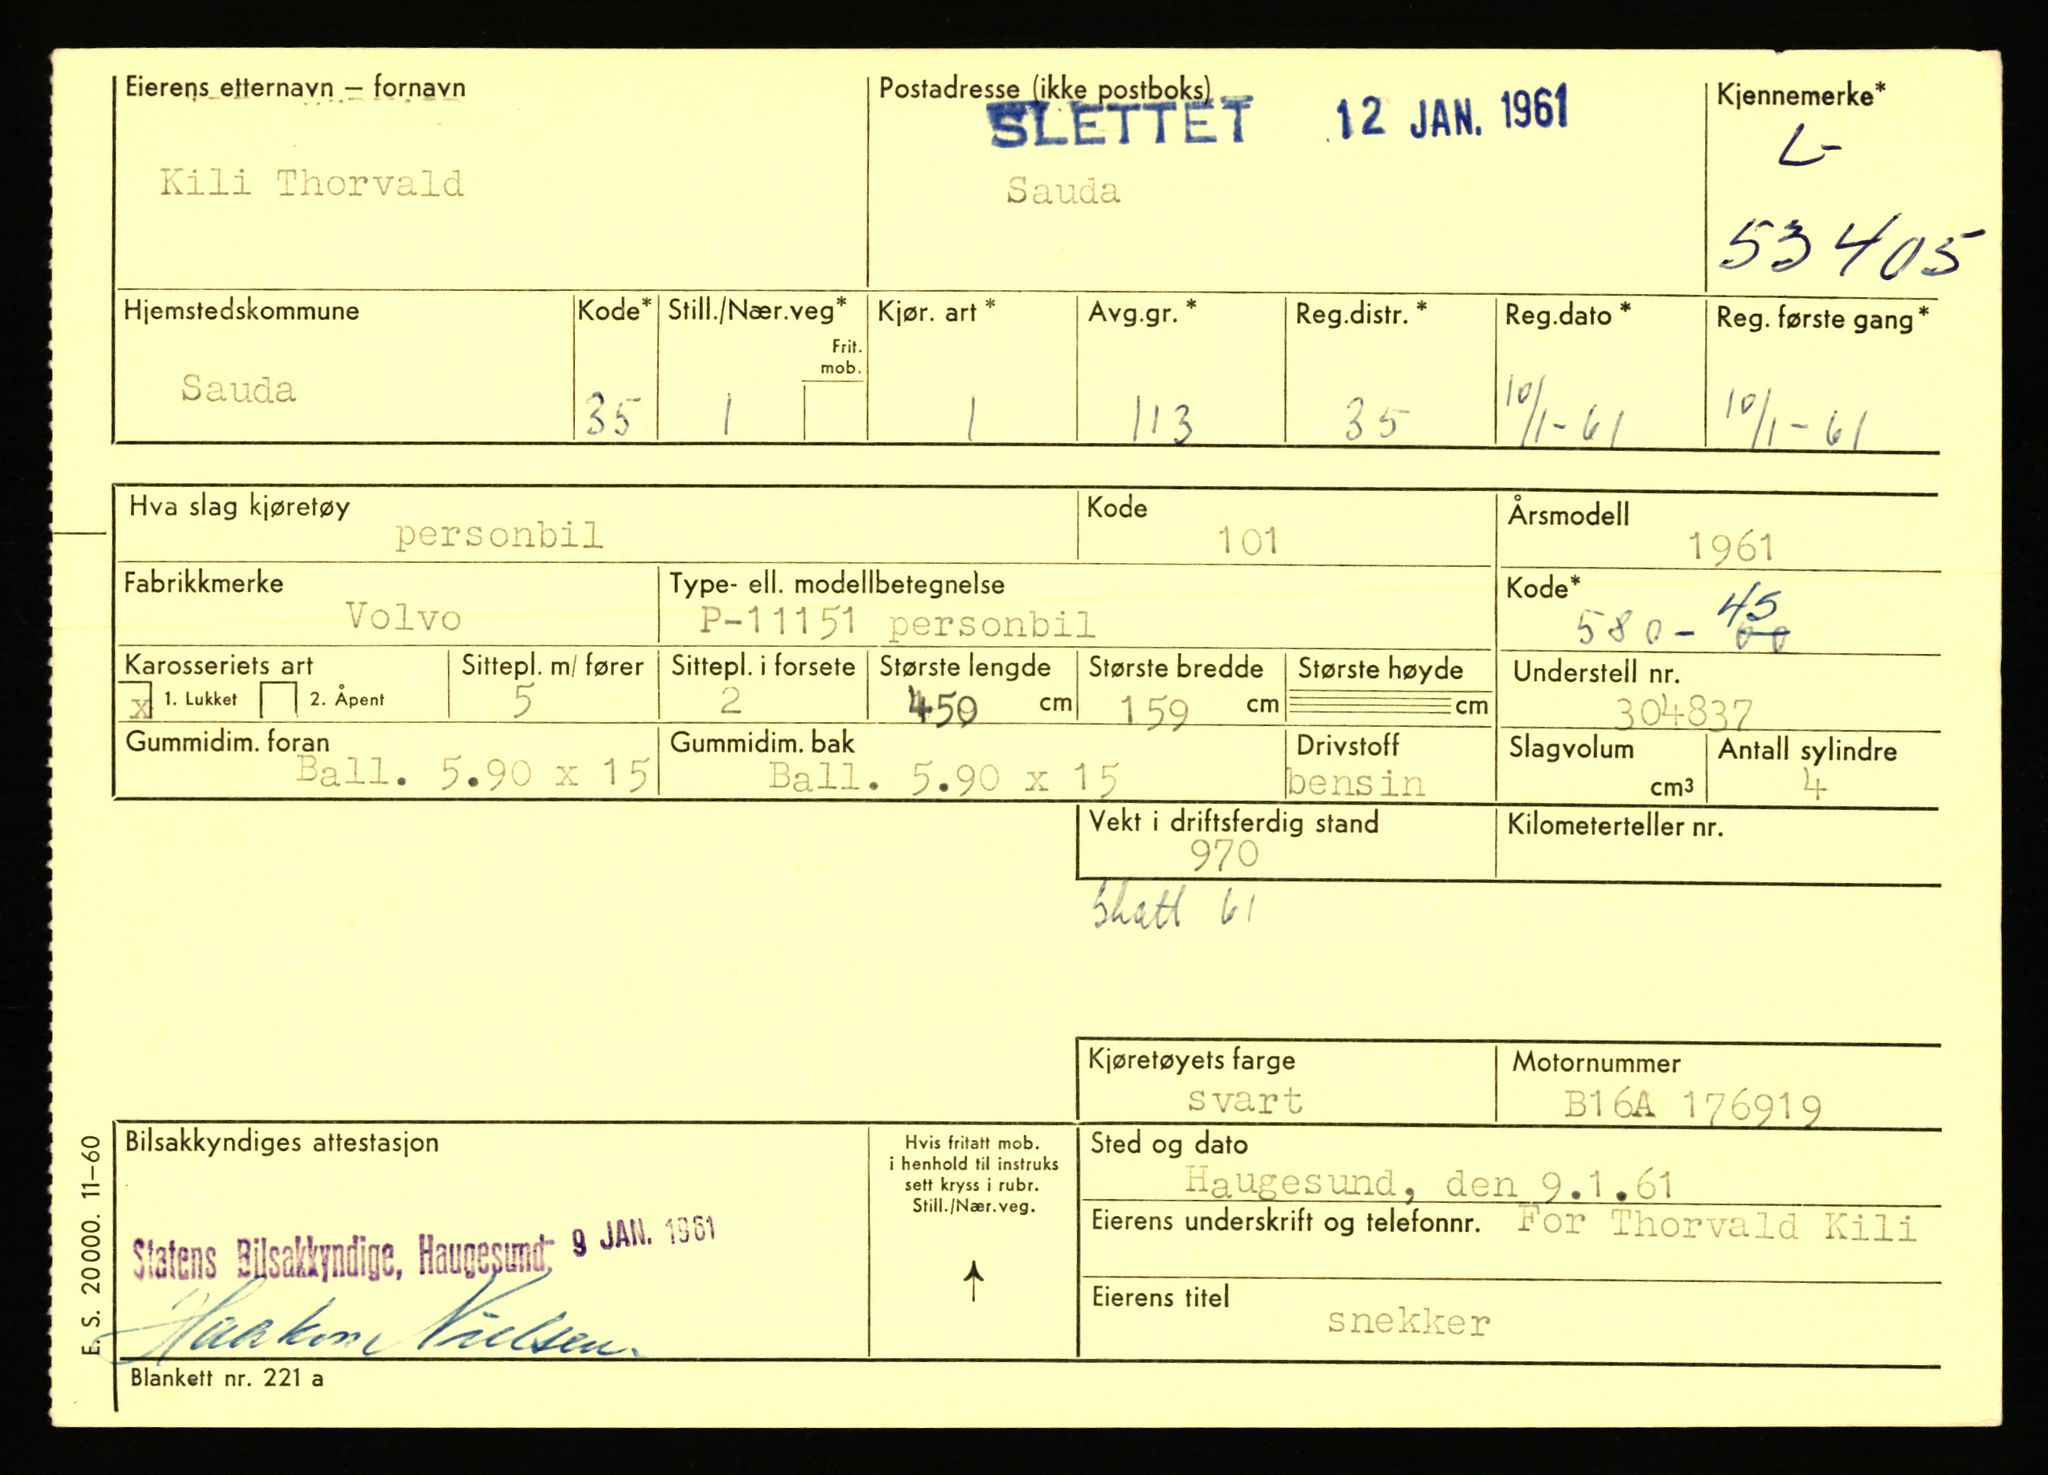 Eierens etternavn – fornavn
Postadresse (ikke postboks)
Kjennemerke*
SLETTET 12 JAN. 1961
L-
Kili Thorvald
Sauda
53405
Hjemstedskommune
Kode*
Still./Nær.veg*
Kjør. art *
Avg.gr. *
Reg.distr. *
Reg.dato *
Reg. første gang*
Frit.
mob.
Sauda
35
1
1
113
35
10/1-61
10/1-61
Hva slag kjøretøy
personbil
Kode
101
Årsmodell
1961
Fabrikkmerke
Volvo
Type- ell. modellbetegnelse
P-11151 personbil
Kode*
45
580-00
Karosseriets art
x 1. Lukket 2. Åpent
Sittepl. m/ fører
5
Sittepl. i forsete
2
Største lengde
450 cm
Største bredde
159 cm
Største høyde
cm
Understell nr.
304837
Gummidim. foran
Ball. 5.90 x 15
Gummidim. bak
Ball. 5.90 x 15
Drivstoff
bensin
Slagvolum
cm³
Antall sylindre
4
Vekt i driftsferdig stand
970
Kilometerteller nr.
Skatt 61
Kjøretøyets farge
svart
Motornummer
B16A 176919
Bilsakkyndiges attestasjon
Statens Bilsakkyndige, Haugesund 9 JAN. 1961
Haakon Nielsen.
Hvis fritatt mob.
i henhold til instruks
sett kryss i rubr.
Still./Nær.veg.
Sted og dato
Haugesund, den 9.1.61
Eierens underskrift og telefonnr. For Thorvald Kili
Eierens titel
snekker
E. S. 20000. 11–60
Blankett nr. 221 a